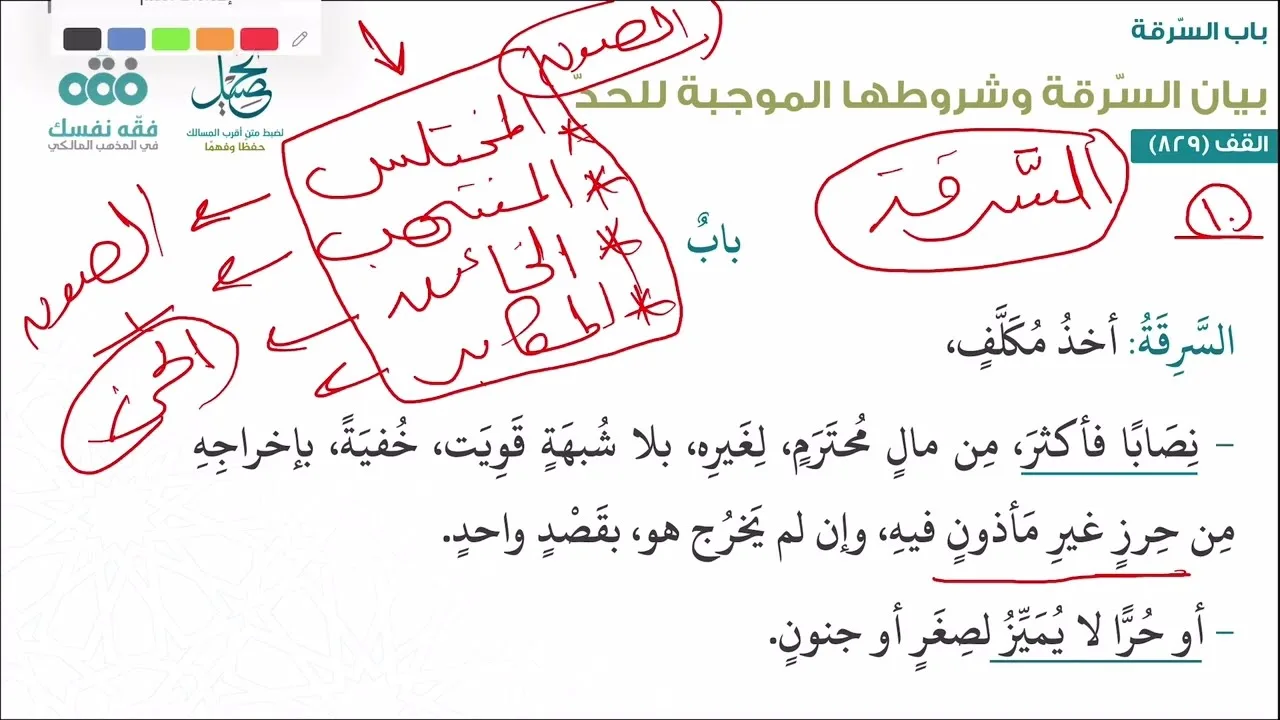 باب السّرقة
بيان السّرقة وشروطها الموجبة للحدّ
القف (٨٢٩)
تحصيل
لضبط متن أقرب المسالك
حفظًا وفهمًا
فقه
فقّه نفسك
في المذهب المالكي
١٠
السَّرقة
اللصوص
* المختلس
* المنتهب
* الخائن
* المكابر
بابٌ
السَّرِقَةُ: أخذُ مُكَلَّفٍ،
– نِصَابًا فأكثرَ، مِن مالٍ مُحتَرَمٍ، لِغَيرِه، بلا شُبهَةٍ قَوِيَت، خُفيَةً، بإخراجِهِ
مِن حِرزٍ غيرِ مَأذونٍ فيهِ، وإن لم يَخرُج هو، بقَصْدٍ واحدٍ.
– أو حُرًّا لا يُمَيِّزُ لصِغَرٍ أو جنونٍ.